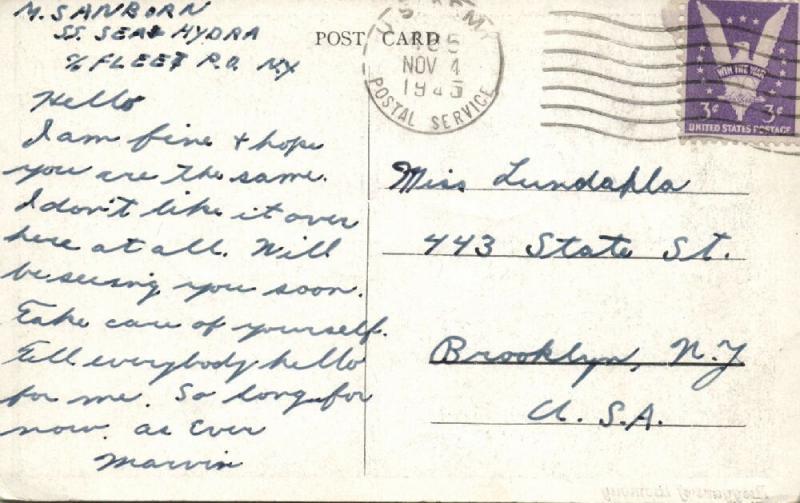 M. SANBORN
SS. SEA HYDRA
% FLEET P.O. N.Y.
POST CARD
NOV 4
POSTAL SERVICE
WIN THE WAR
3¢ 3¢
UNITED STATES POSTAGE
Hello
I am fine + hope
you are the same.
I don't like it over
here at all. Will
be seeing you soon.
Take care of yourself.
Tell everybody hello
for me. So long for
now. as Ever
Marvin
Miss
443 State St.
Brooklyn, N.Y
U.S.A.